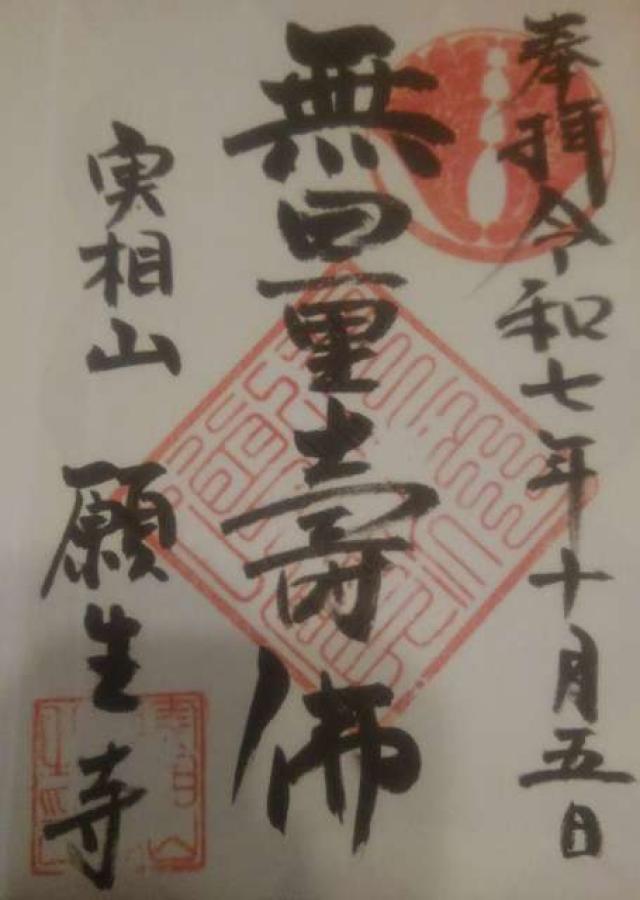 奉拝令和七年十月五日
無量壽佛
実相山 願生寺